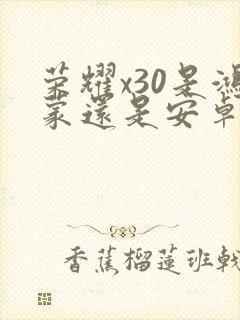 荣耀x30是鸿
蒙還是安卓
香蕉榴蓮班戟